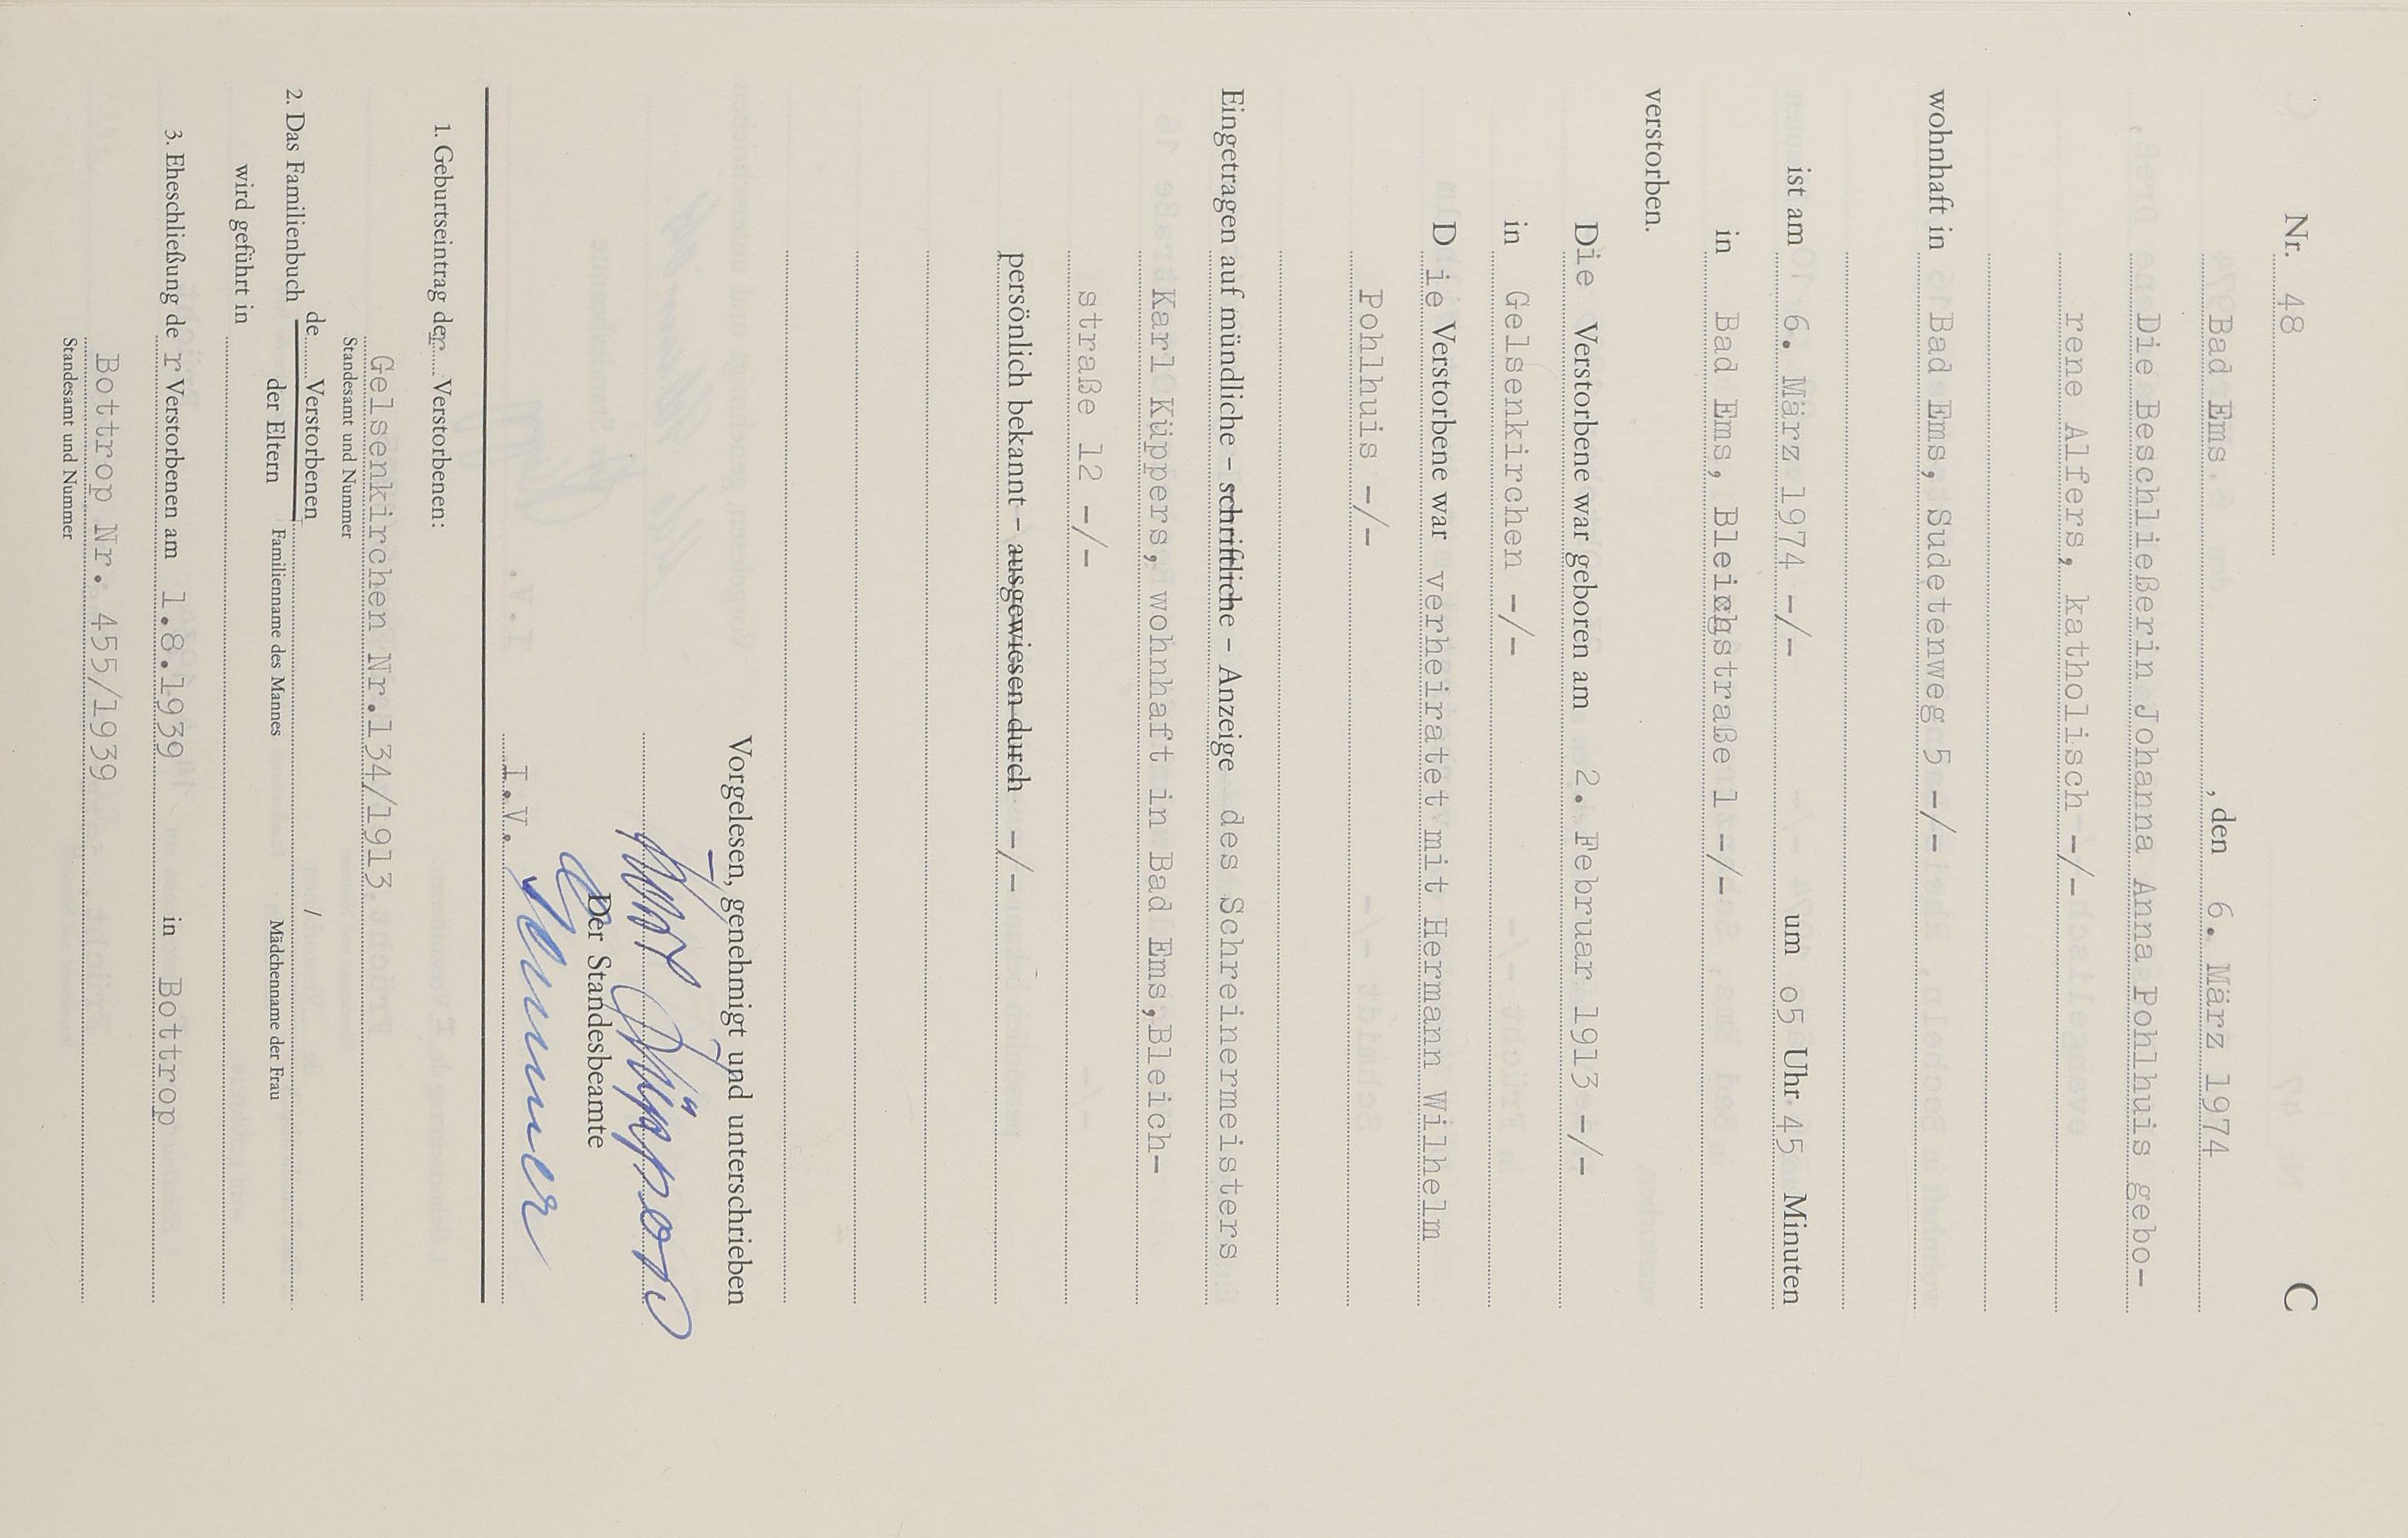 C
Nr. 48
Bad Ems, den 6. März 1974
Die Beschließerin Johanna Anna Pohlhuis gebo-
rene Alfers, katholisch -/-
wohnhaft in Bad Ems, Sudetenweg 5 -/-
ist am 6. März 1974 -/- um o5 Uhr 45 Minuten
in Bad Ems, Bleichstraße 1 -/-
verstorben.
Die Verstorbene war geboren am 2. Februar 1913 -/-
in Gelsenkirchen -/-
Die Verstorbene war verheiratet mit Hermann Wilhelm
Pohlhuis -/-
Eingetragen auf mündliche - schriftliche - Anzeige des Schreinermeisters
Karl Küppers, wohnhaft in Bad Ems, Bleich-
straße 12 -/-
persönlich bekannt - ausgewiesen durch -/-
Vorgelesen, genehmigt und unterschrieben
Karl Küppers
Der Standesbeamte
I.V.
1. Geburtseintrag der Verstorbenen:
Gelsenkirchen Nr. 134/1913
Standesamt und Nummer
2. Das Familienbuch de Verstorbenen /
der Eltern Familienname des Mannes Mädchenname der Frau
wird geführt in
3. Eheschließung der Verstorbenen am 1.8.1939 in Bottrop
Bottrop Nr. 455/1939
Standesamt und Nummer